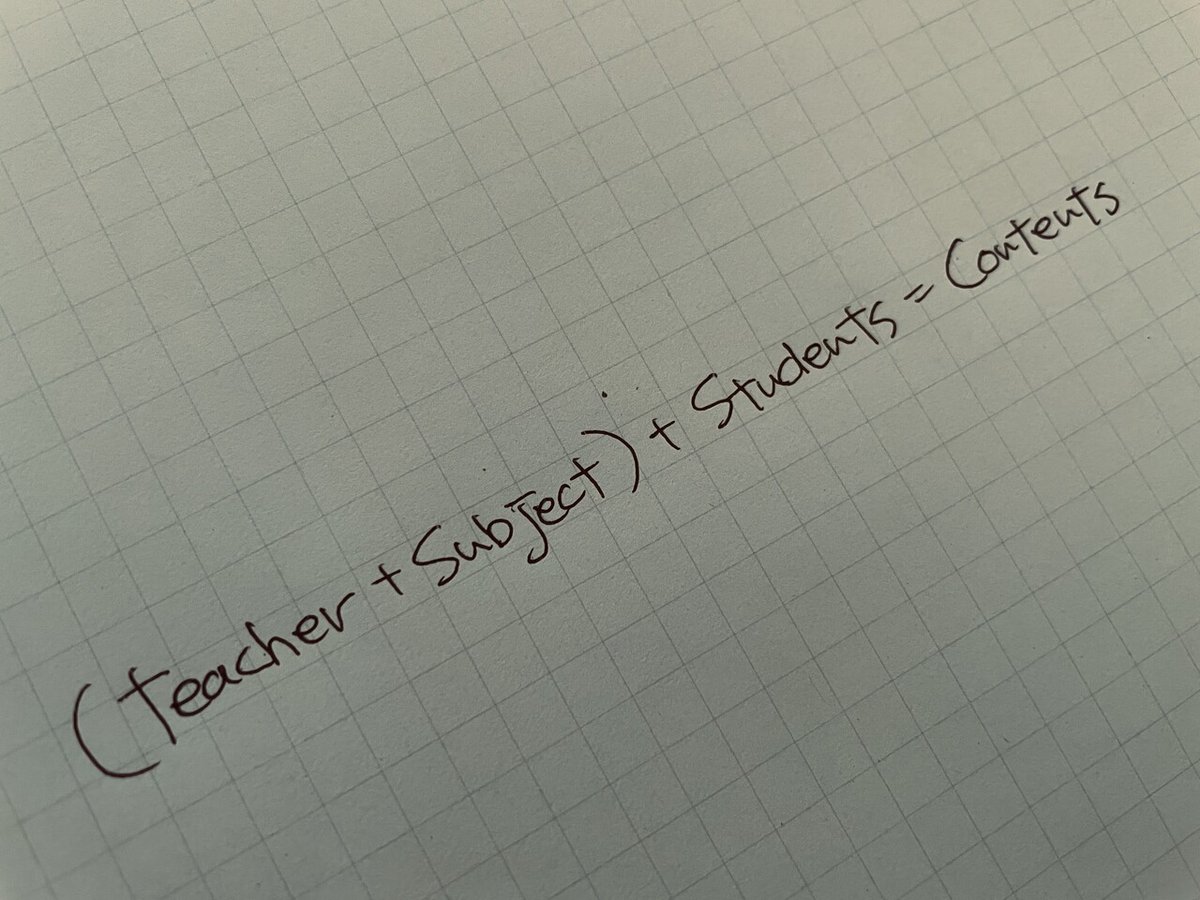 (Teacher + Subject) + Students = Contents